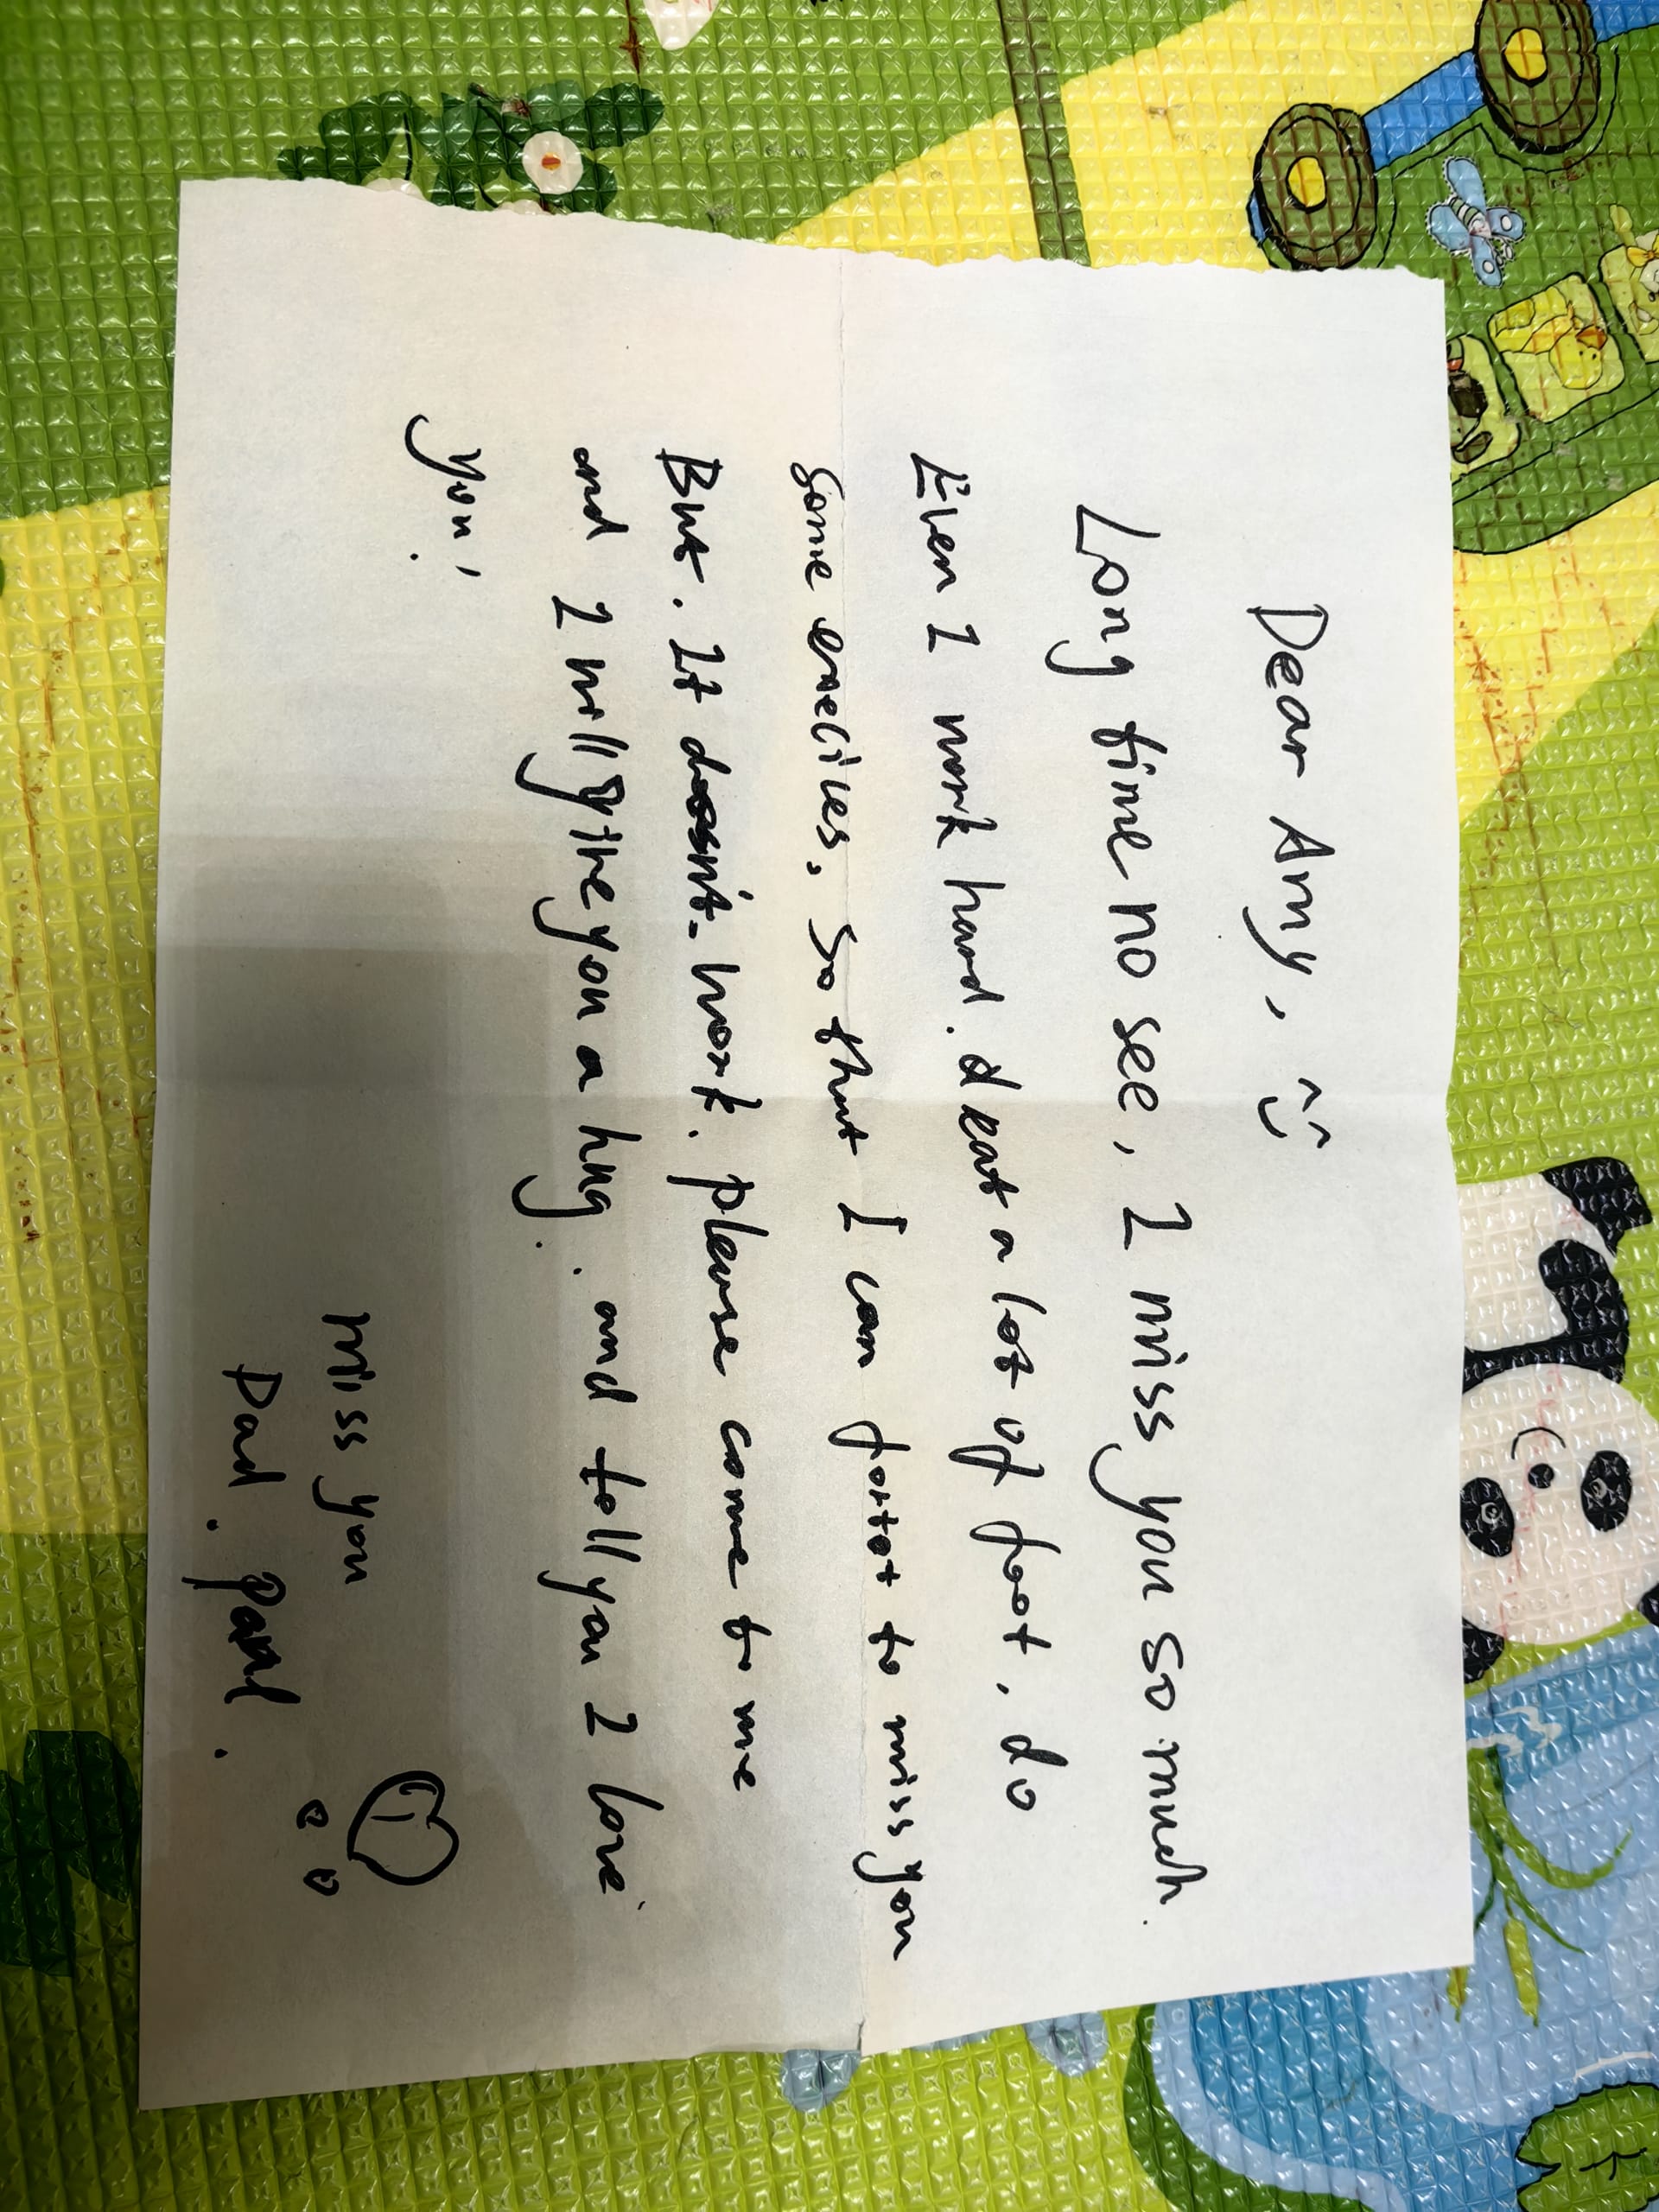 Dear Amy,
Long time no see, I miss you so much.
Even I work hard. eat a lot of foot, do
some execises, so that I can fortot to miss you
But. It doesn't work. please come to me
and I will give you a hug. and tell you I love
you!
miss you
Dad. Paul.